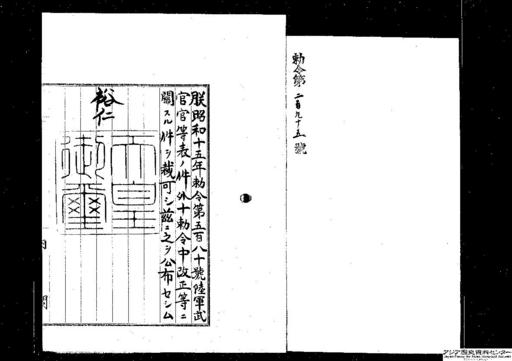 勅令第二百九十五號
朕昭和十五年勅令第五百八十號陸軍武
官官等表ノ件外十勅令中改正等ニ
關スル件ヲ裁可シ茲ニ之ヲ公布セシム
裕仁
天皇
御璽
アジア歴史資料センター